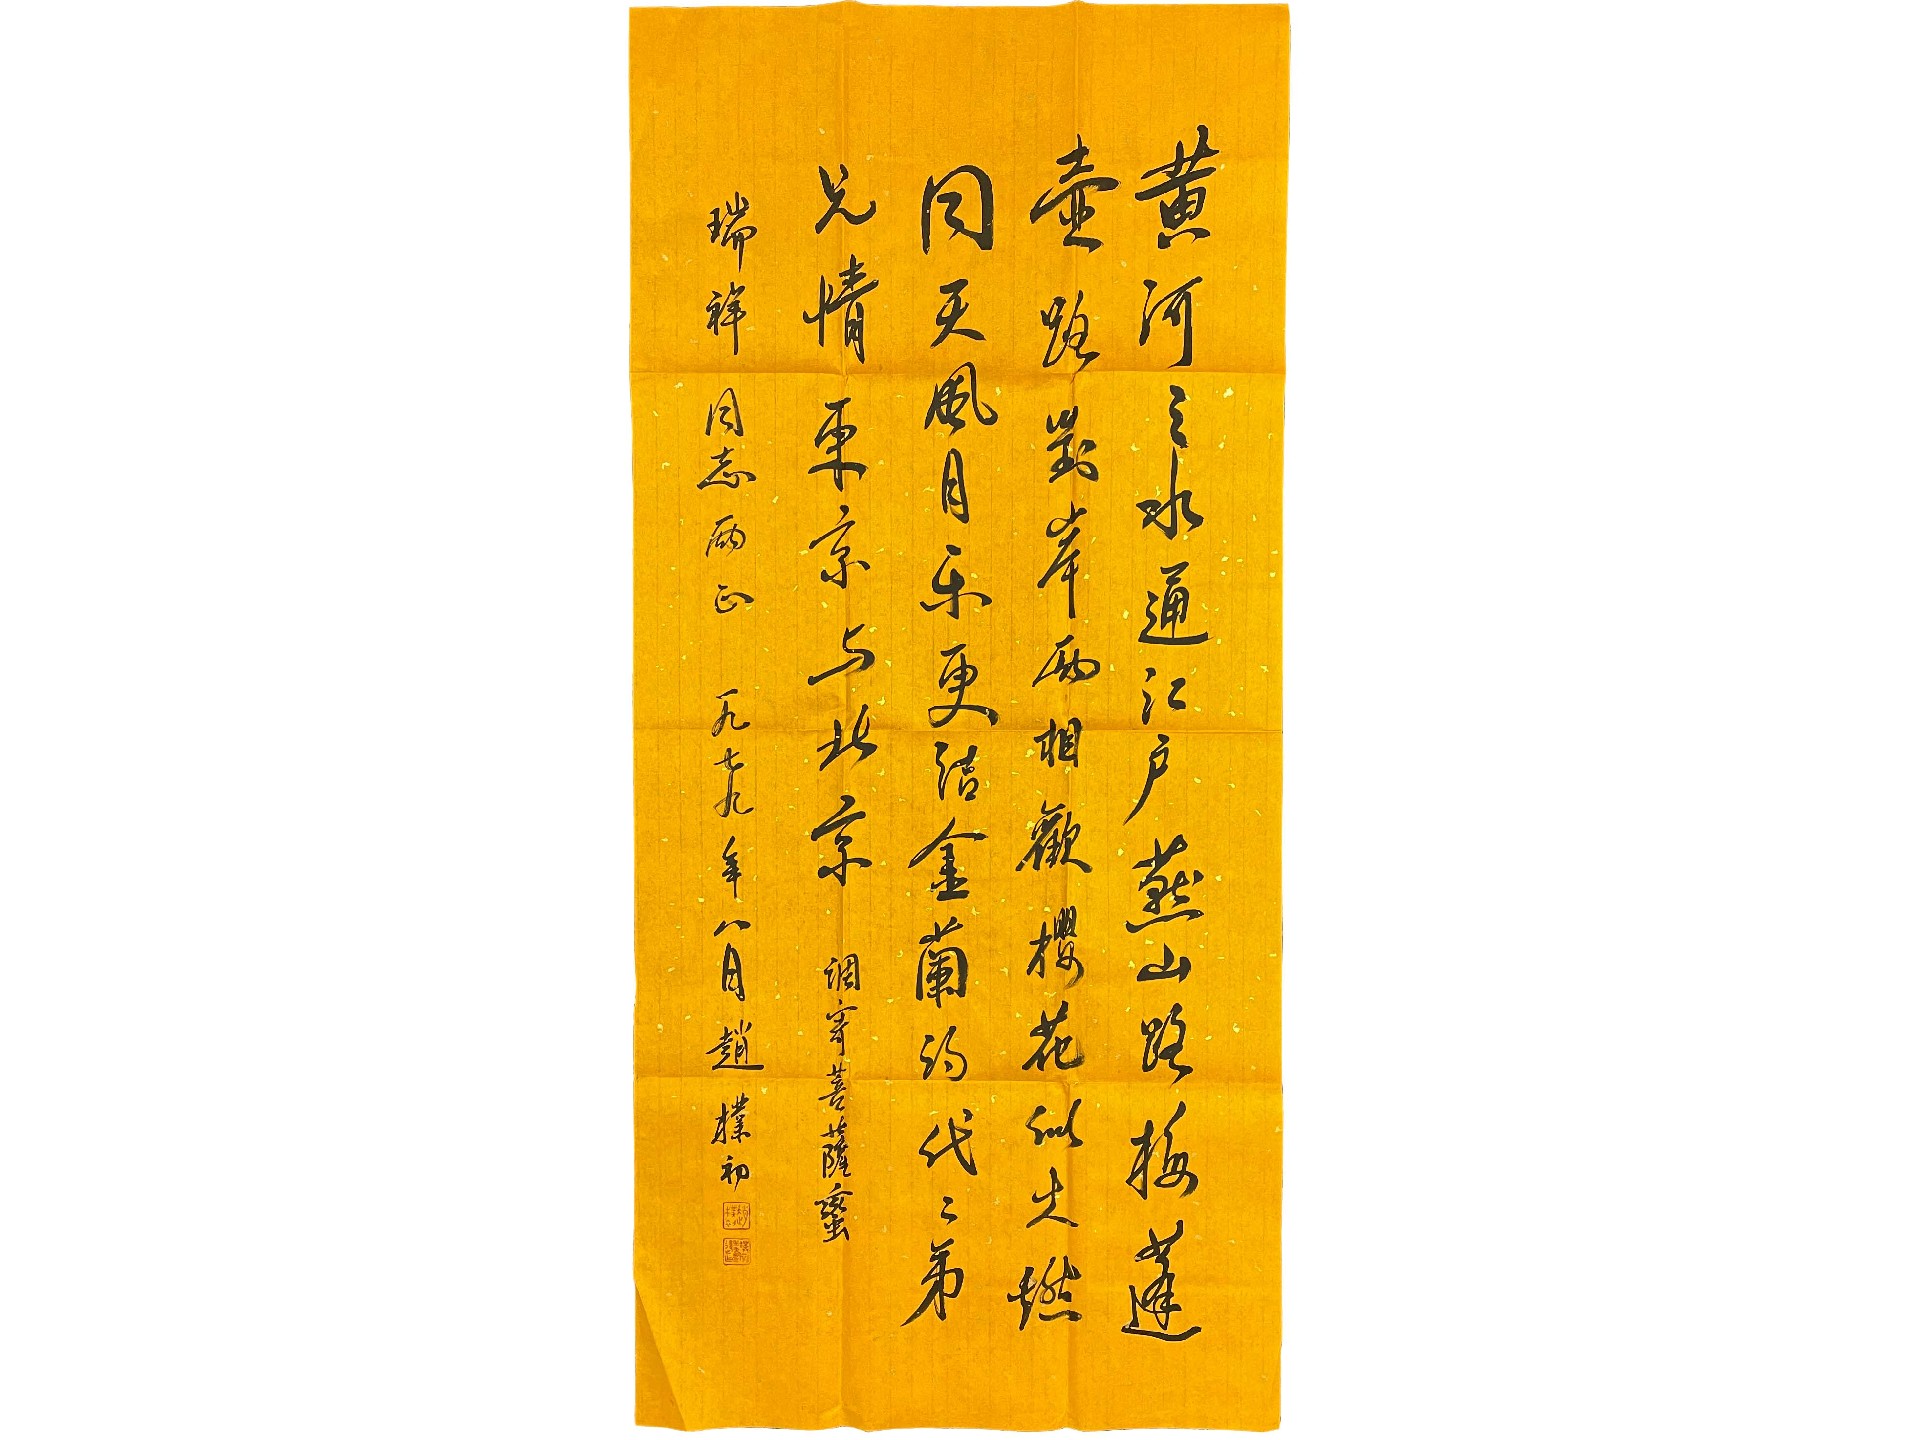 黄河之水通江户燕山路接蓬
壶路對岸两相歡櫻花似火燃
同天風月乐更结金蘭约代々弟
兄情東京与北京 调寄菩薩蠻
瑞祥同志两正 一九七九年八月趙樸初